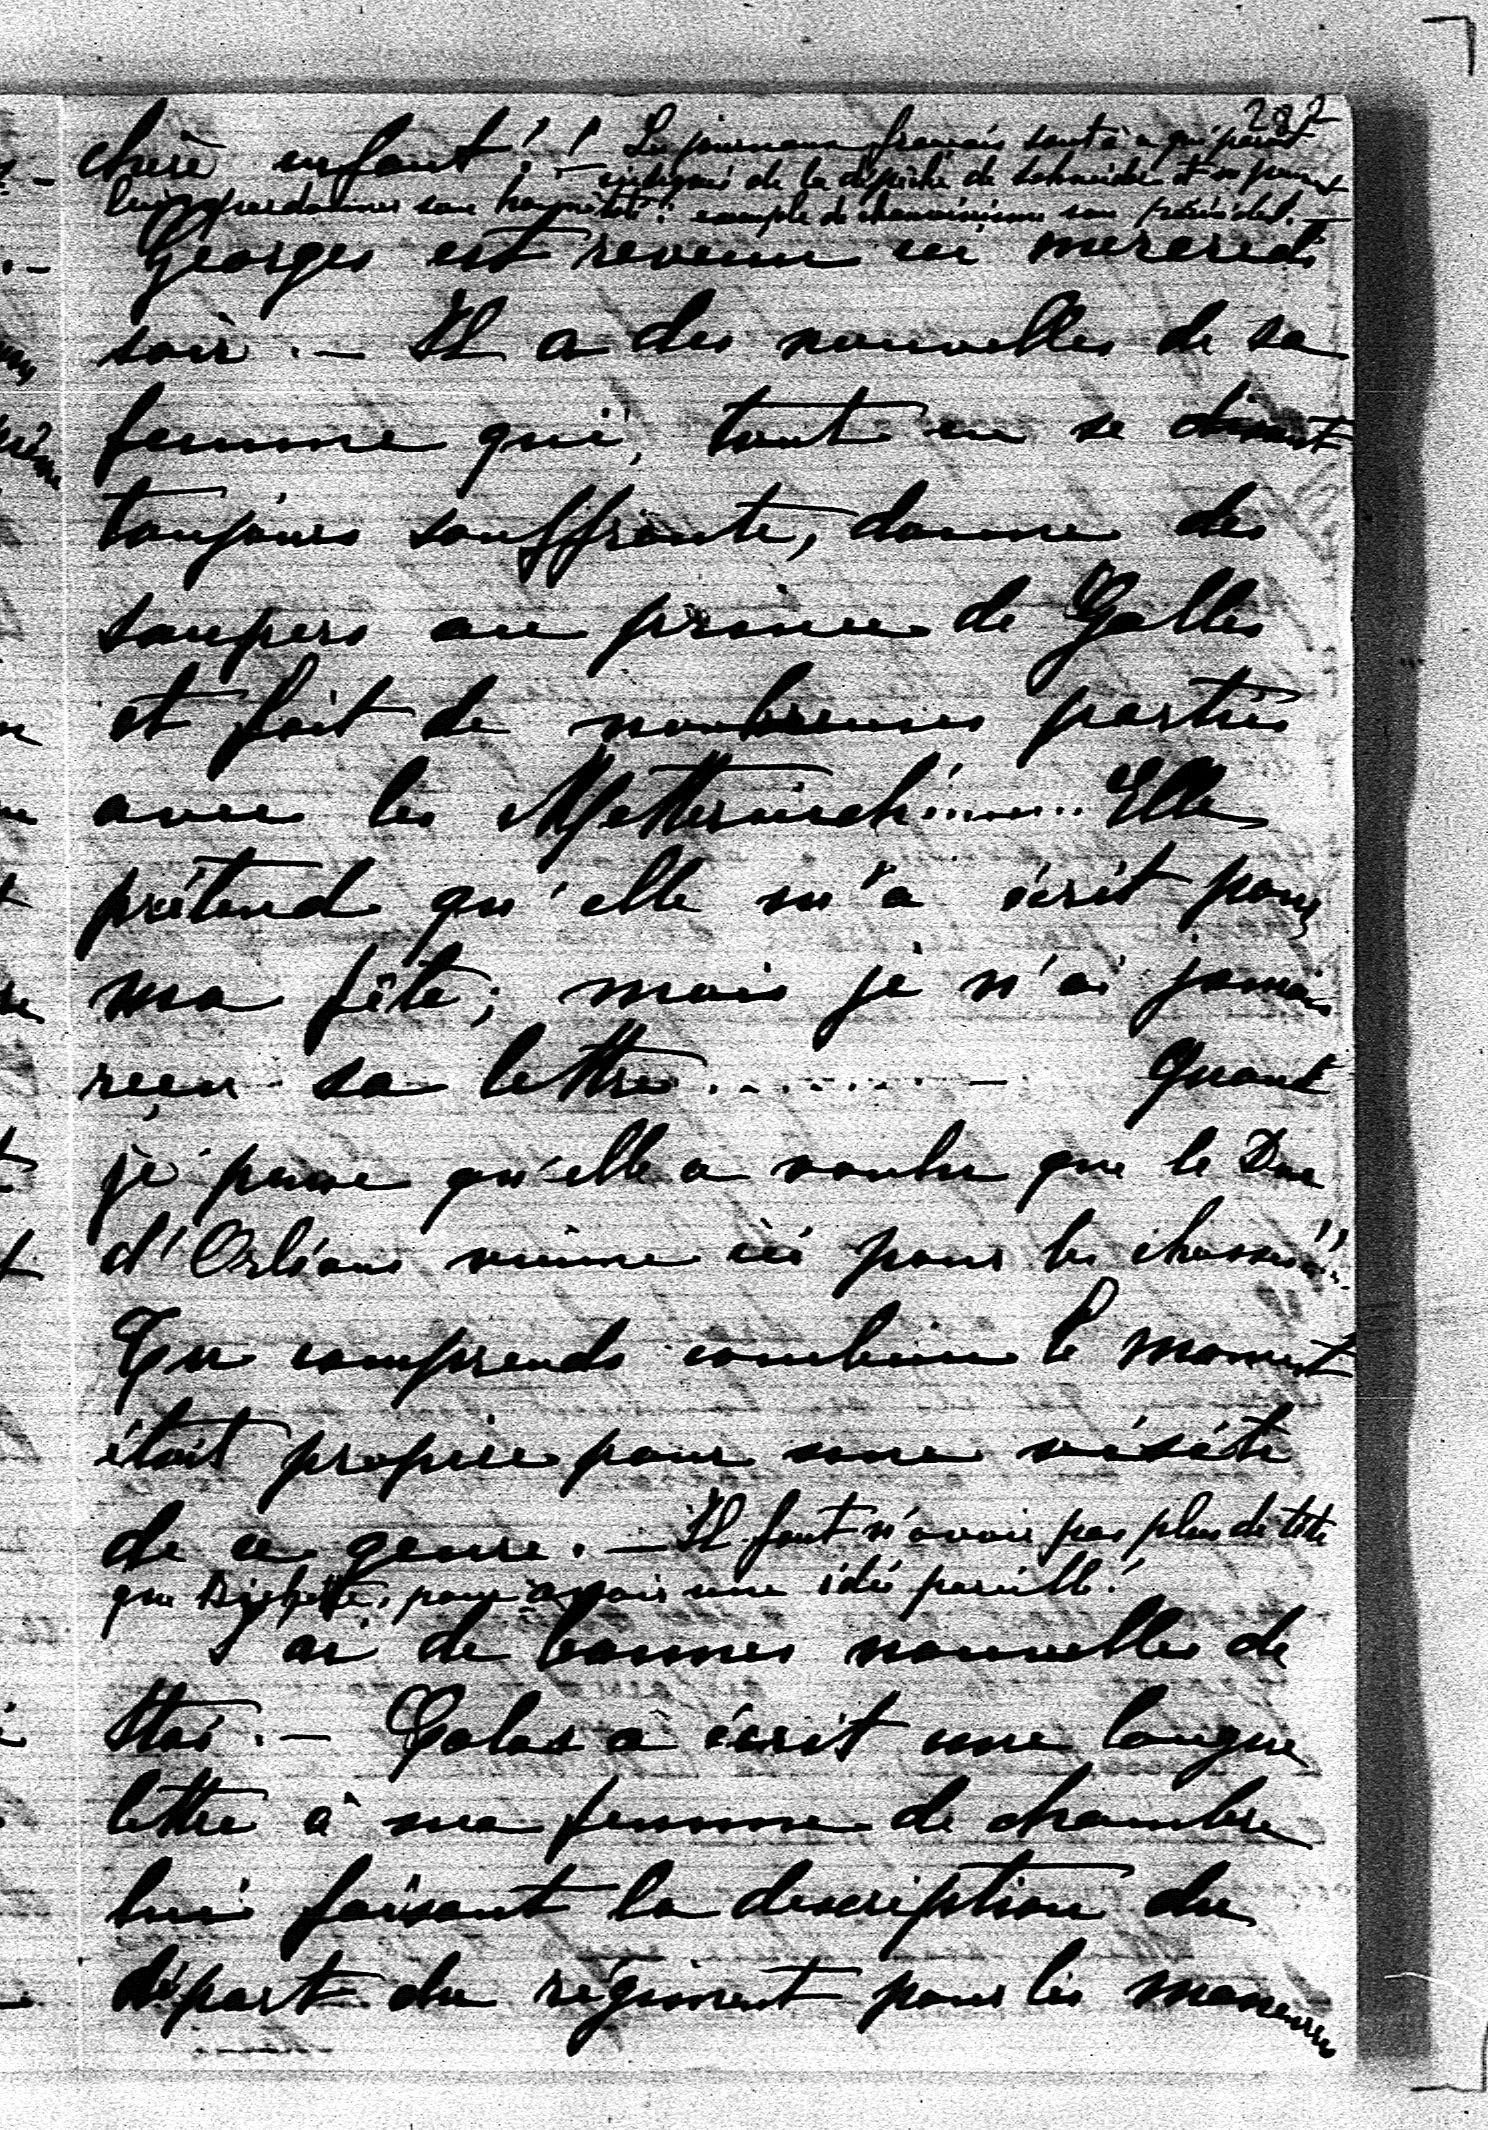 282
chère enfant!! — Les journaux français sont à ce qu'il paraît
indignés de la dépêche de Schneider et ne peuvent
lui pardonner son honnêteté! exemple de chauvinisme sans précédent. —
Georges est revenu ici mercredi
soir. — Il a des nouvelles de sa
femme qui, tout en se disant
toujours souffrante, donne des
soupers au prince de Galles
et fait de nombreuses parties
avec les Metternich........ Elle
prétend qu'elle m'a écrit pour
ma fête; mais je n'ai jamais
reçu sa lettre.......... — Quand
je pense qu'elle a voulu que le Duc
d'Orléans vienne ici pour les chasses!!...
Tu comprends combien le moment
était propice pour une visite
de ce genre. — Il faut n'avoir pas plus de tête
que pour avoir une idée pareille!
J'ai de bonnes nouvelles de
Stoï. — Colas a écrit une longue
lettre à ma femme de chambre
lui faisant la description du
départ du régiment pour les manœuvres